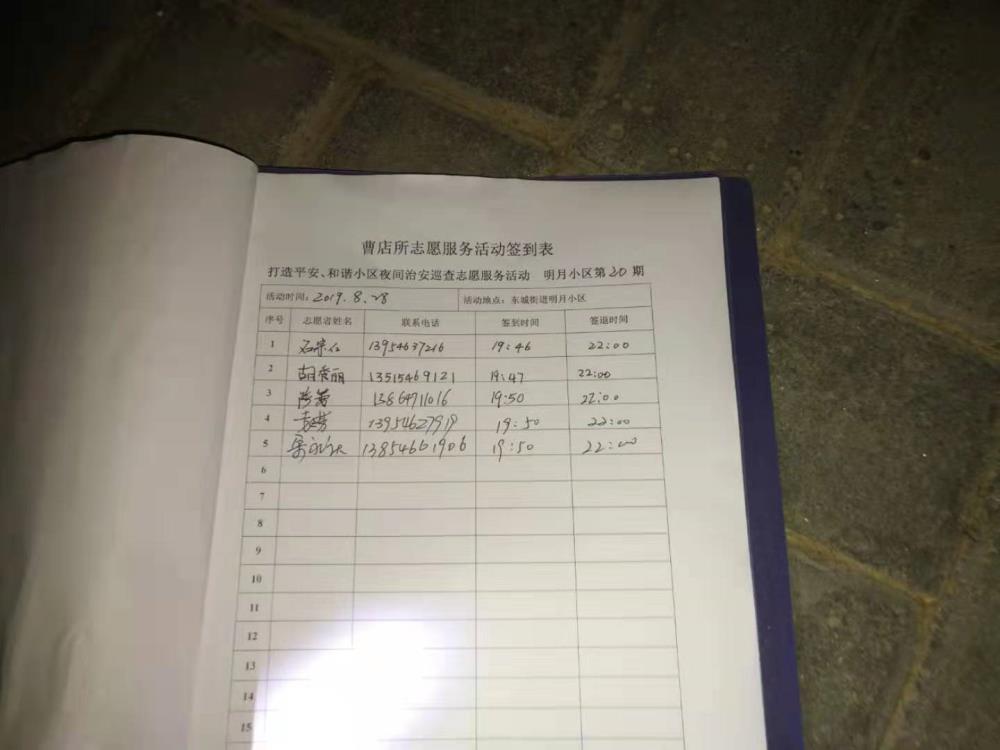 曹店所志愿服务活动签到表
打造平安、和谐小区夜间治安巡查志愿服务活动 明月小区第20期
活动时间:2019.8.28 活动地点:东城街道明月小区
序号 志愿者姓名 联系电话 签到时间 签退时间
1 13954637216 19:46 22:00
2 胡爱丽 13515469121 19:47 22:00
3 13864711016 19:50 22:00
4 袁芳 13954627919 19:50 22:00
5 13854661906 19:50 22:00
6
7
8
9
10
11
12
13
14
15